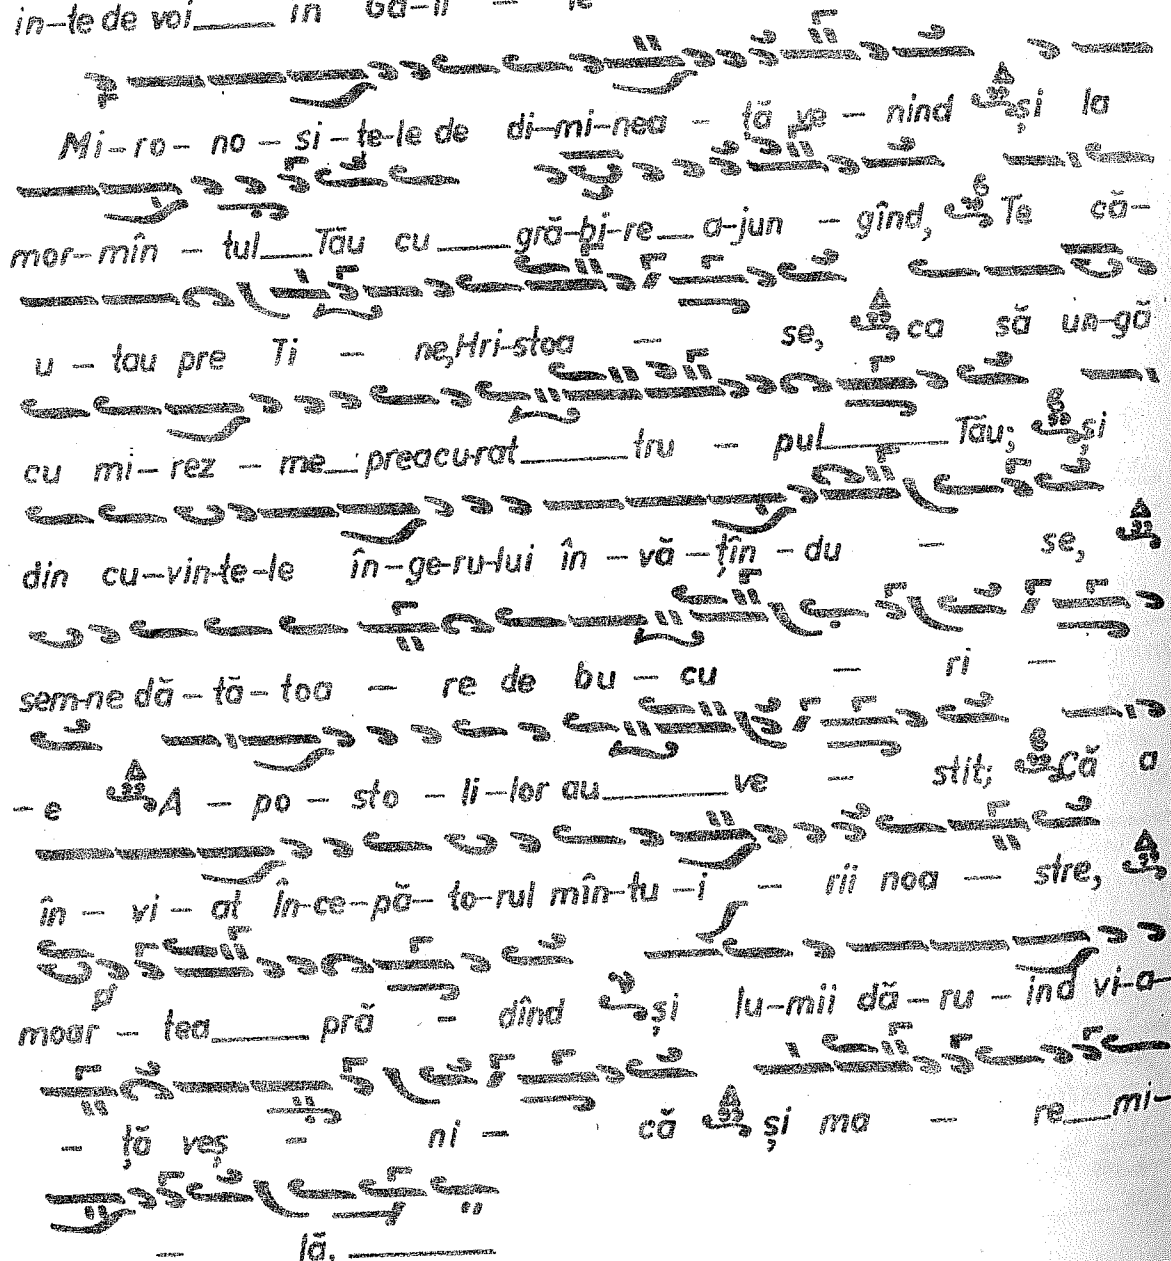 in-te de voi____ în Ga-li - le
Mi-ro-no-si-te-le de di-mi-nea - ță ve - nind și la
mor-mîn - tul___Tău cu____gră-bi-re__a-jun - gînd, Te că-
u - tau pre Ti - ne, Hri-stoa - se, ca să un-gă
cu mi-rez - me__preacu-rat______tru - pul______Tău; și
din cu-vin-te-le în-ge-ru-lui în-vă-țîn-du - se,
semne dă-tă-toa - re de bu - cu - ri -
- e A - po - sto - li-lor au______ve - stit; Că a
în - vi - at În-ce-pă-to-rul mîn-tu-i - rii noa - stre,
moar - tea_____pră - dînd și lu-mii dă-ru-ind vi-a-
- ță veș - ni - că și ma - re__mi-
- lă.________